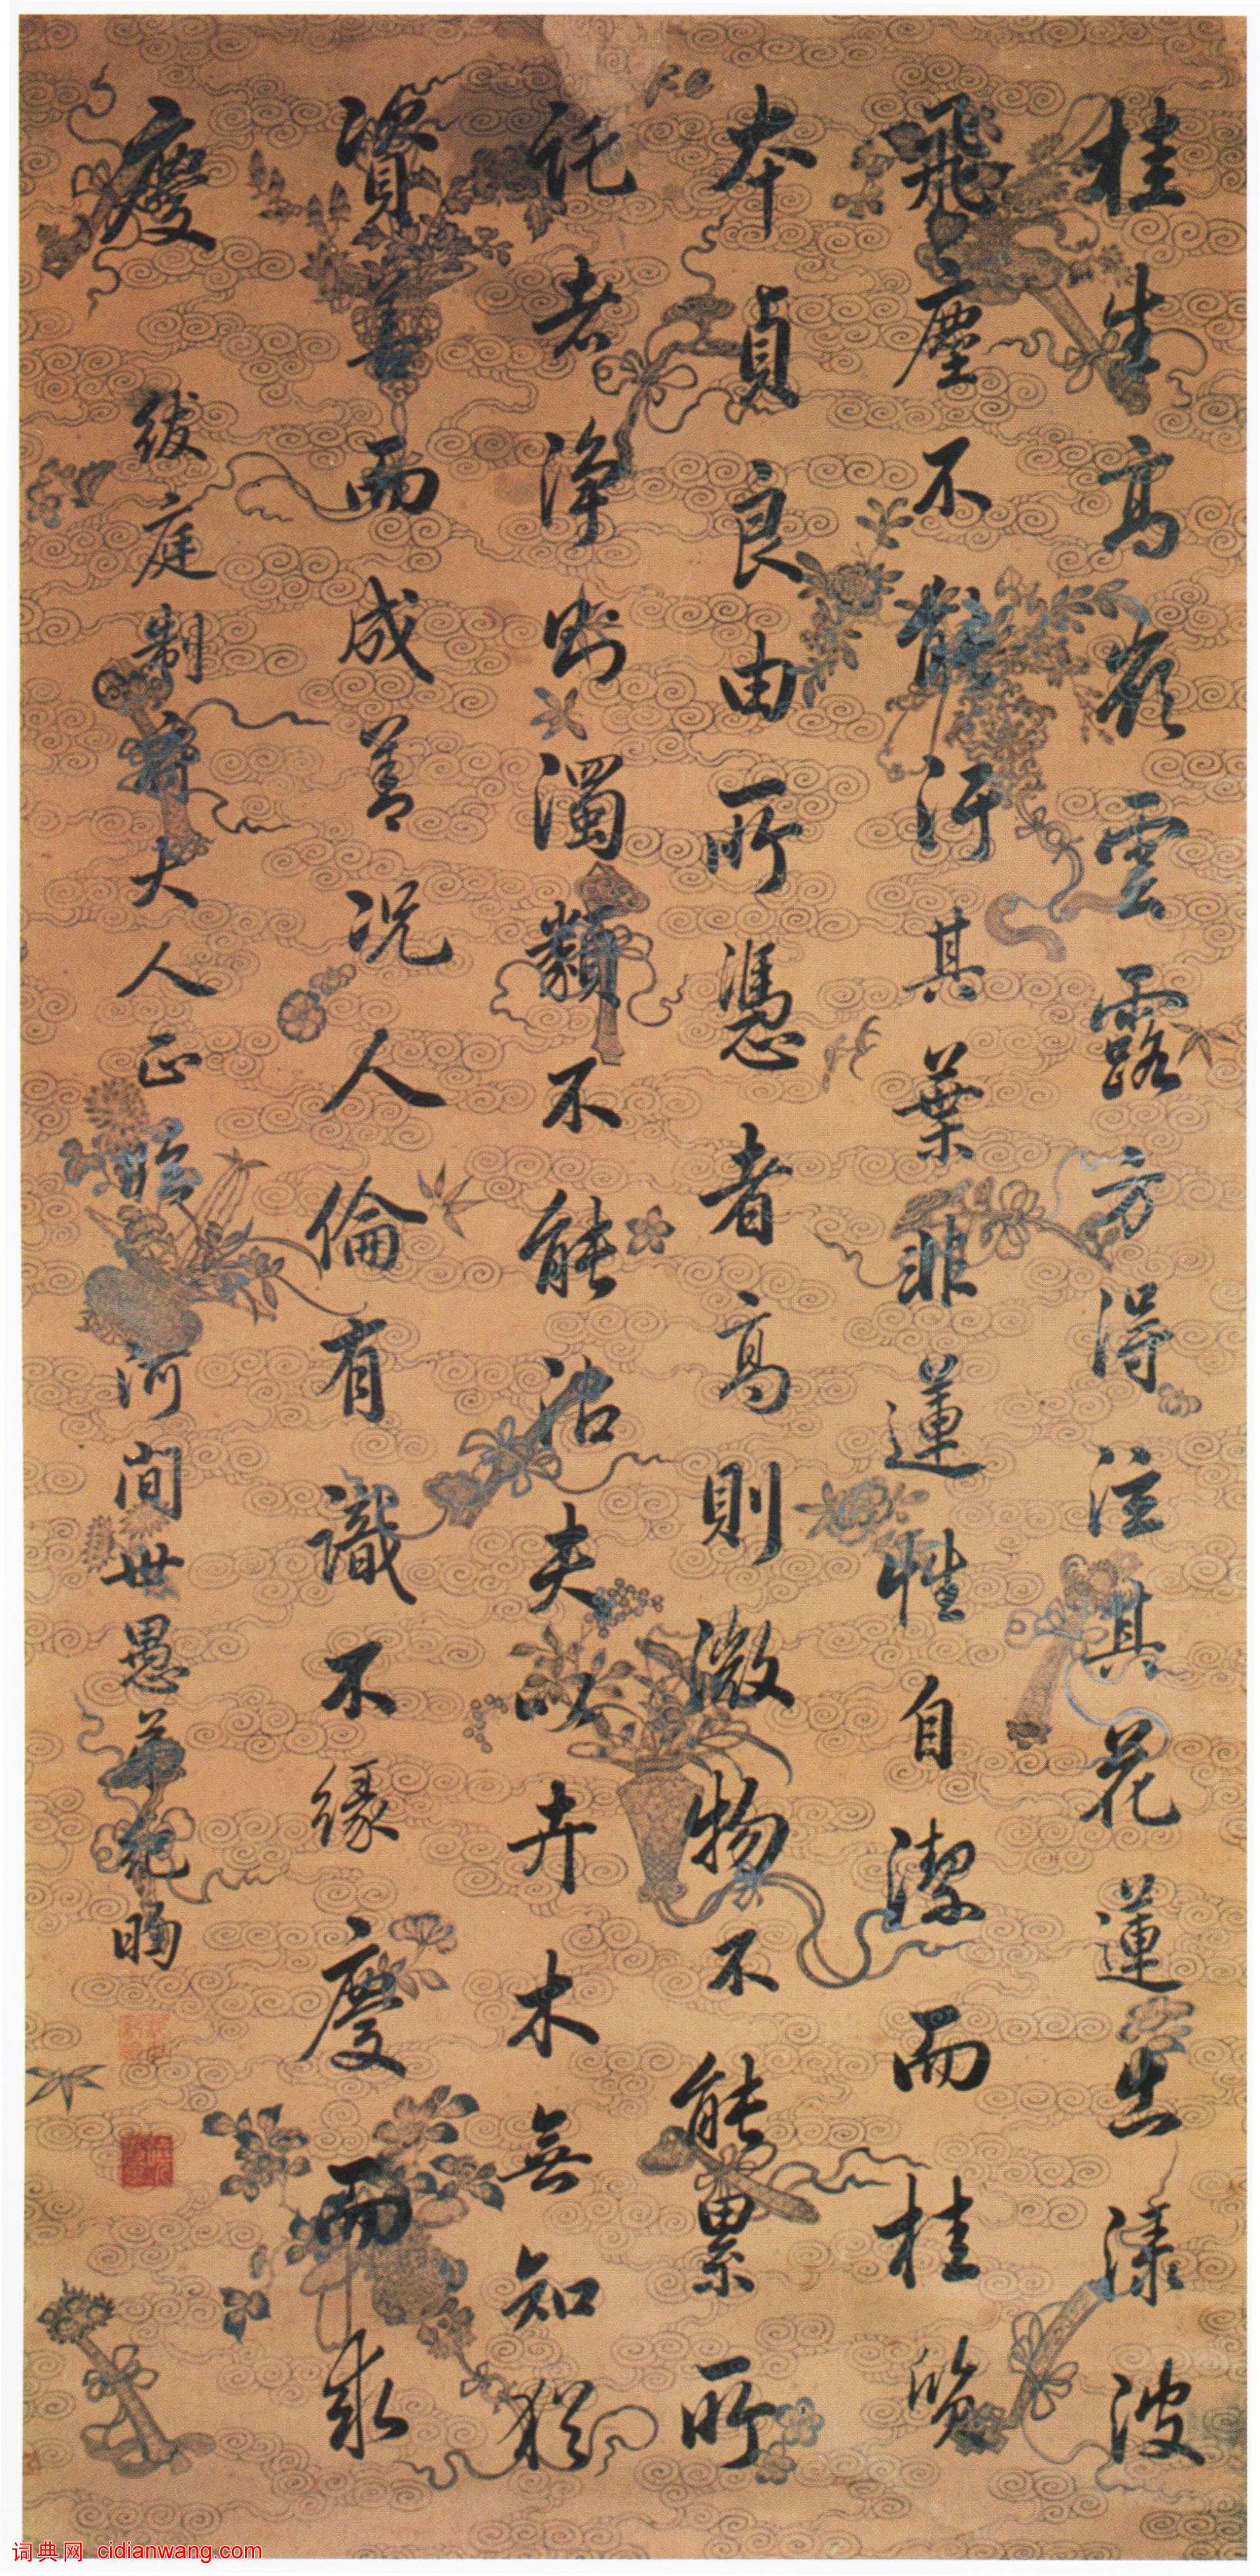 桂生高嶺雲露方得泫其花蓮出淥波
飛塵不能汙其葉非蓮性自潔而桂質
本貞良由所憑者高則微物不能累所
託者淨則濁類不能沾夫以卉木無知猶
資善而成善況人倫有識不緣慶而求
慶 紱庭制府大人正 河間世愚弟紀昀
词典网 cidianwang.com